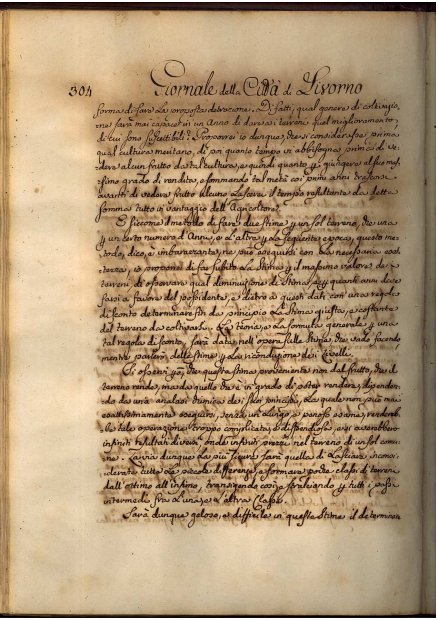 304 Giornale della Città di Livorno
forma di fare la proposta detrazione. Di fatti, qual genere di coltivazio,
ne sarà mai capace in un Anno di dare ai terreni quel miglioramento,
di cui sono suscettibili? Proporrei io dunque, che si considerasse prima
qual cultura meritano, di poi quanto tempo vi abbisogna prima di ve,
dere alcun frutto da tal cultura, e quindi quanto p giungere al suo mas,
simo grado di rendita, e sommando tal metà coi primi anni trascorsi
avanti di vedere frutto alcuno lasciare il tempo resultante da detta
somma tutto in vantaggio dell'Agricoltore.
E siccome il metodo di fare due stime p un sol terreno, che una
p un certo numero d'Anni, e l'altra p la seguente epoca, questo me,
todo, dico, è imbarazzante, ne può eseguirsi con la necessaria esat,
tezza, io proporrei di far subito la Stima p il massimo valore dei
terreni di osservare qual diminuzione di Stima e p quanti anni deve
farsi a favore del possidente, e dietro a questi dati con una regola
di sconto determinare fin da principio la Stima giusta, e costante
del terreno da coltivarsi. La teoria, e la formula generale p una
tal regola di sconto, sarà data nell'opera sulle Stime, che vado facendo,
mentre parlerò delle stime p la riconduzione dei Livelli.
Si osservi poi, che questa stima proveniente non dal frutto, che il
terreno rende, ma da quello che è in grado di poter rendere, dipenden,
do da una analasi chimica dei suoi principj, la quale non può mai
esattissimamente eseguirsi, senza un lungo, e penoso esame, rendereb,
be tale operazione troppo complicata, e dispendiosa, e si avrebbero
infiniti resultati diversi, onde infiniti prezzi nel terreno di un sol comu,
ne. La via dunque la più sicura sarà quella di lasciare incon,
siderate tutte le piccole differenze, e formare poche classi di terreni
dall'ottimo all'infimo, transigendo così, e stralciando p tutti i passi
intermedi fra l'una, e l'altra Classe.
Sarà dunque geloso, e difficile in queste Stime il determinare